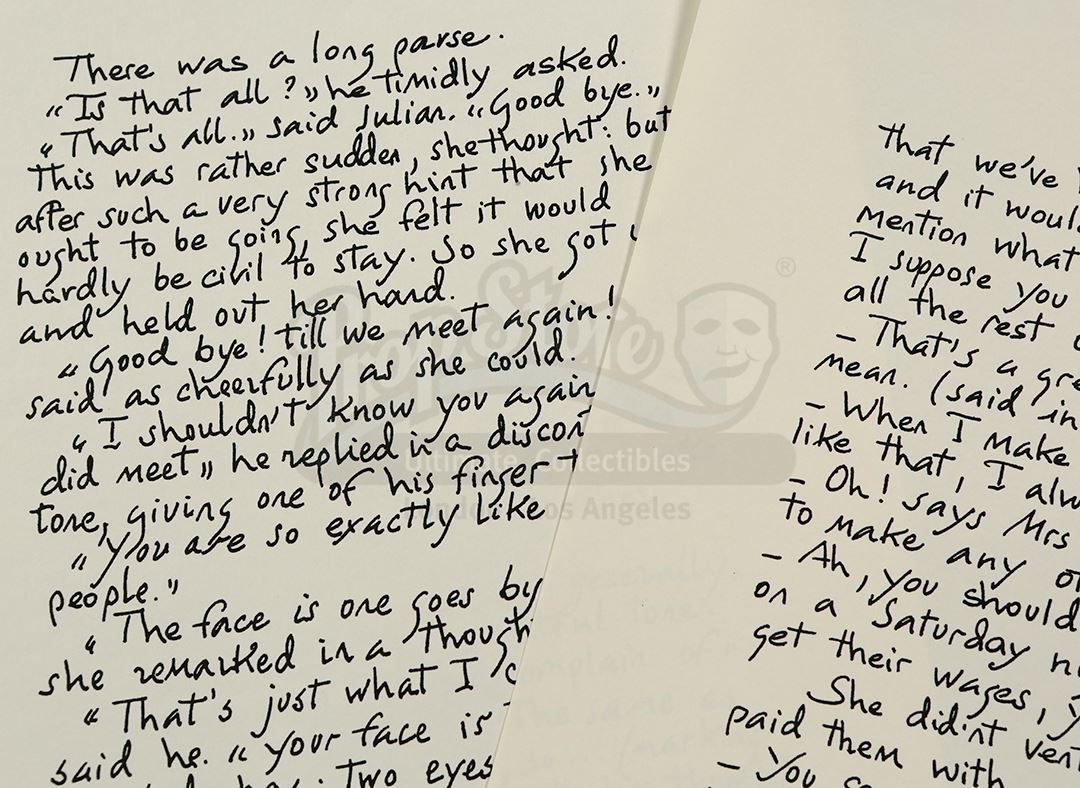 There was a long parse.
“Is that all?„ he timidly asked.
“That's all.„ said Julian. “Good bye.„
This was rather sudden, she thought: but
after such a very strong hint that she
ought to be going, she felt it would
hardly be civil to stay. So she got
and held out her hand.
“Good bye! till we meet again!
said as cheerfully as she could.
“I shouldn't know you again
did meet„ he replied in a discon
tone, giving one of his finger t
“You are so exactly like
people.”
“The face is one goes by
she remarked in a though
“That's just what I c
said he. “your face is
Two eyes
That we've
and it would
mention what
I suppose you
all the rest
- That's a gre
mean. (said in
- When I make
like that, I alw
- Oh! says Mrs
to make any o
- Ah, you should
on a Saturday ni
get their wages, y
She did'nt vent
paid them with
- You
St
PropStore
®
Ultimate Collectibles
London Los Angeles